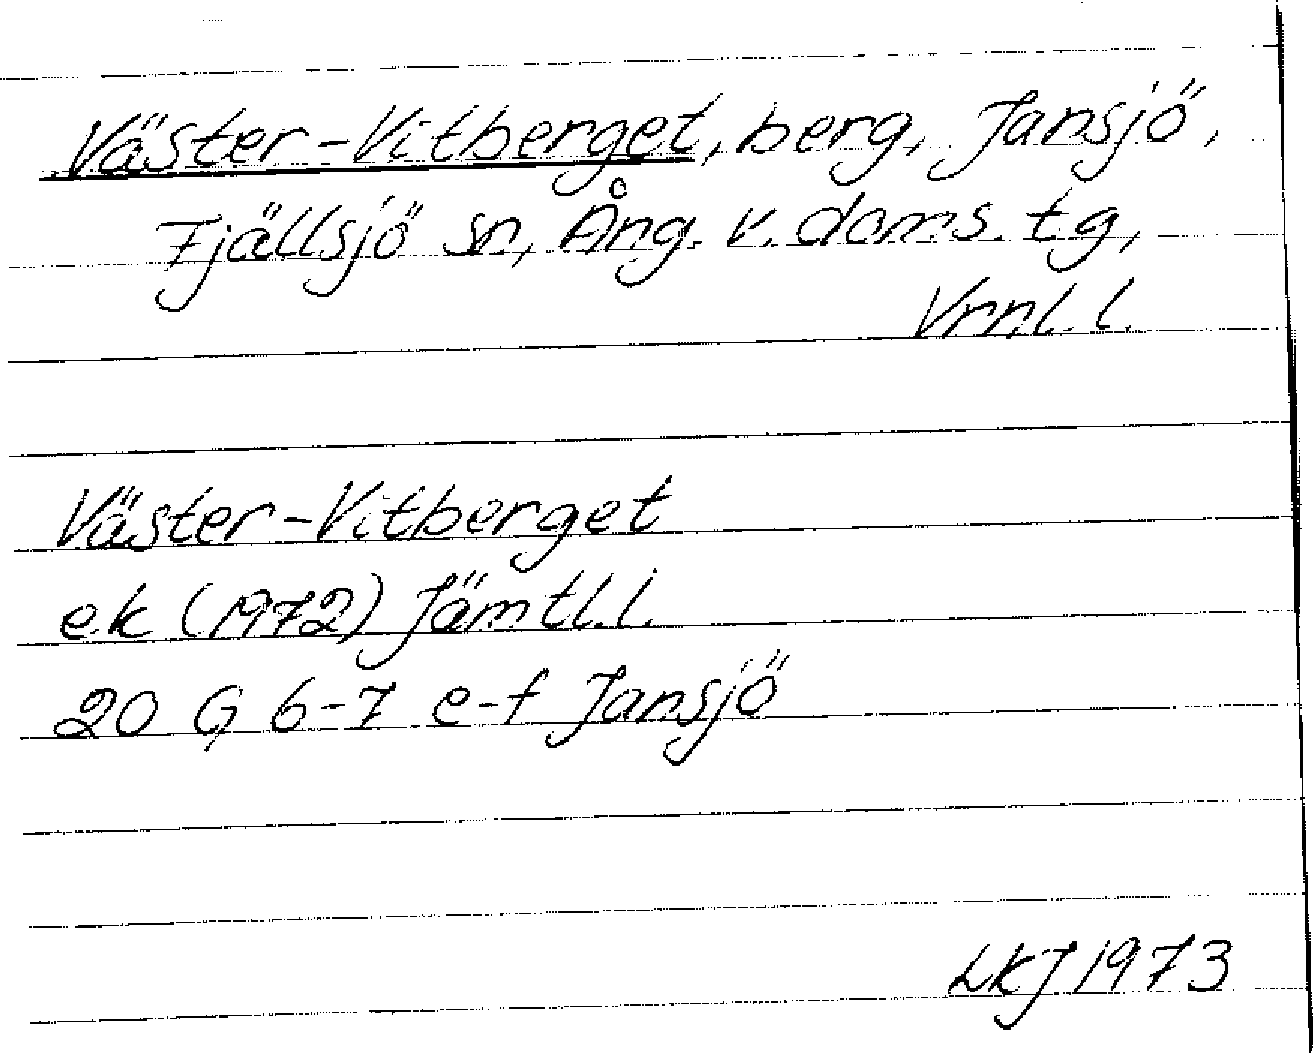 Väster-Vitberget, berg, Jansjö,
Fjällsjö sn, Ång. v. doms. tg,
Vrnl. l.
Väster-Vitberget
ek (1972) Jämtl. l.
20 G 6-7 e-f Jansjö
LKJ 1973